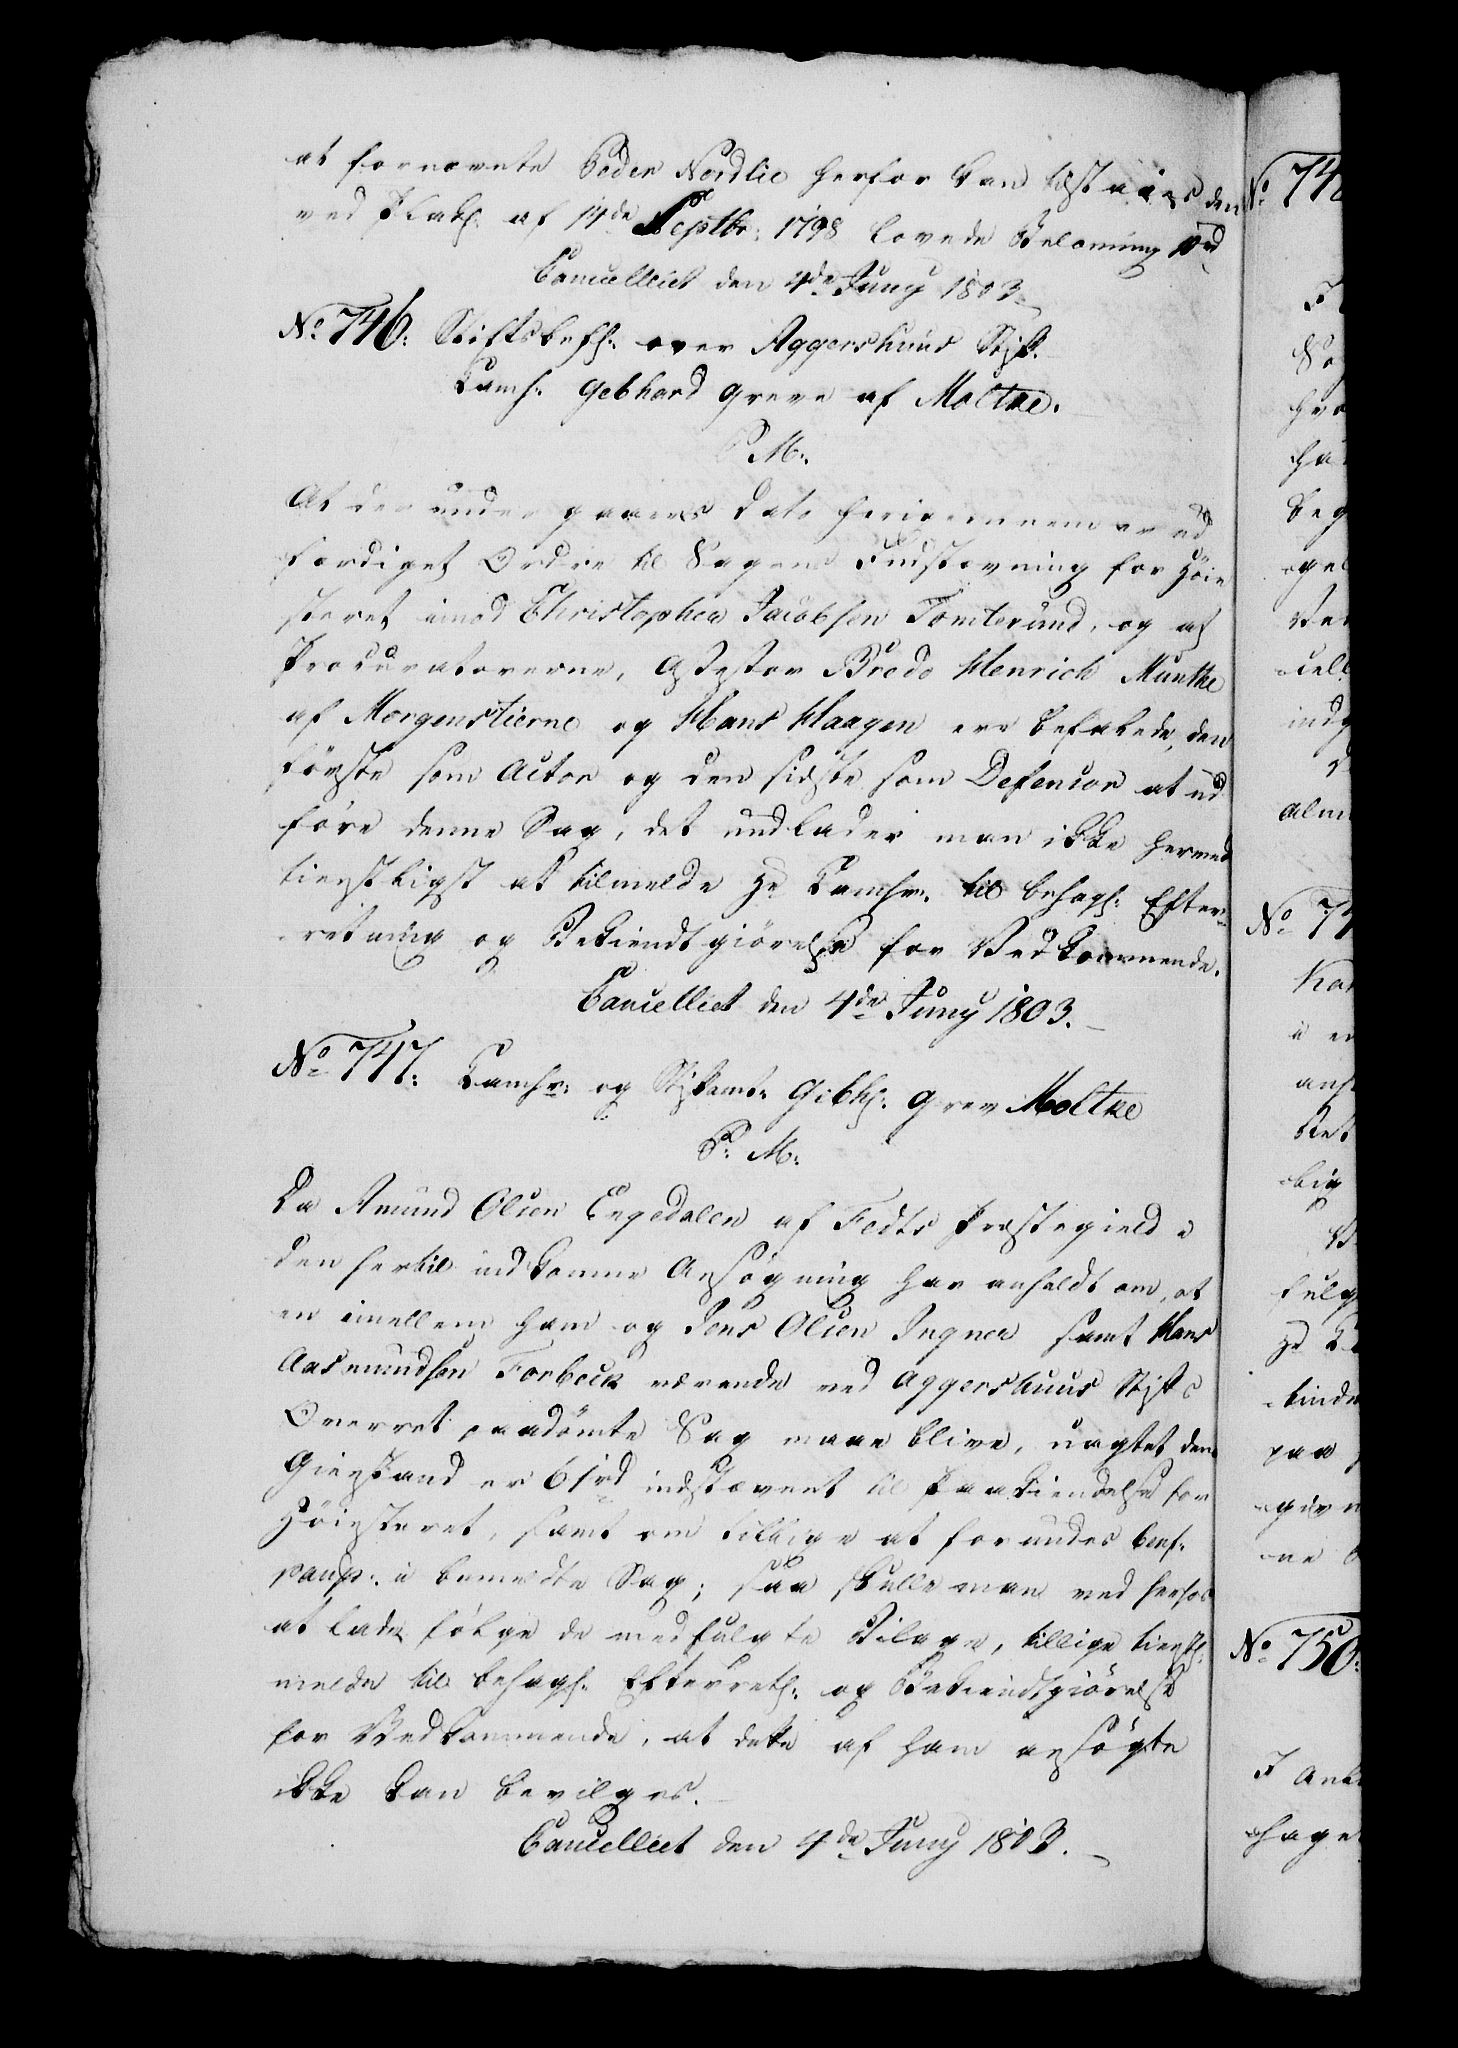 at fornævnte Peder Nordlie herfor kan tilstaaes den
ved Plak: af 14de Septbr: 1798 lovede Belønning 10rd
Cancelliet den 4de Juny 1803.
No 746: Stiftsbefh: over Aggershuus Stift.
Camh: Gebhard Greve af Moltke.
P. M:
At der under gaaers Dato herigiennem er ud
færdiget Ordre til Sagens Indstævning for Höie
steret imod Christopher Jacobsen Tomterund, og at
Procuratorerne, Assessor Bredo Henrich Munthe
af Morgenstierne og Hans Haagen ere befalede, den
förste som Actor og den sidste som Defensor at ud
före denne Sag, det undlader man ikke herved
tienstligst at tilmelde Hr Camhr: til behagl: Efter-
retning og Bekiendtgiörelse for Vedkommende.
Cancelliet den 4de Juny 1803.
No 747: Camhr: og Stiftamt: Gebh: Grev Moltke
P: M:
Da Amund Olsen Engedalen af Fedts Præstegield i
den hertil indkomne Ansögning har anholdt om, at
en imellem ham og Jens Olsen Ingner samt Hans
Aasmundsen Forbeck værende ved Aggershuus Stifts
Overret paadömte Sag maae blive, uagtet dens
Gienstand er 61rd indstævnet til Paakiendelse for
Höiesteret, samt om tillige at forundes benf:
paup: i bemeldte Sag; saa skulle man ved herhos
at lade fölge de medfulgte Bilage, tillige tienstl:
melde til behagl: Efterretn: og Bekiendtgiörelse
for Vedkommende, at dette af ham ansögte
ikke kan bevilges.
Cancelliet den 4de Juny 1803.
No 750: